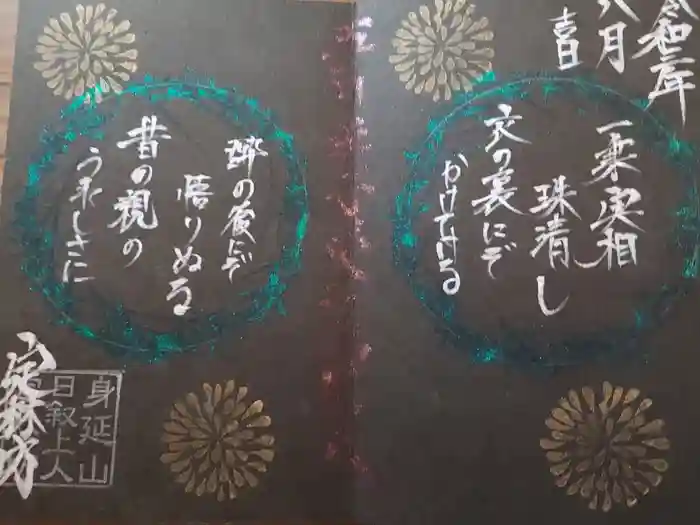 八月
一乗実相
珠清し
衣の裏にぞ
かけてける
酔の後にぞ
悟りぬる
昔の親の
うれしさに
定林坊
身延山
日叙上人